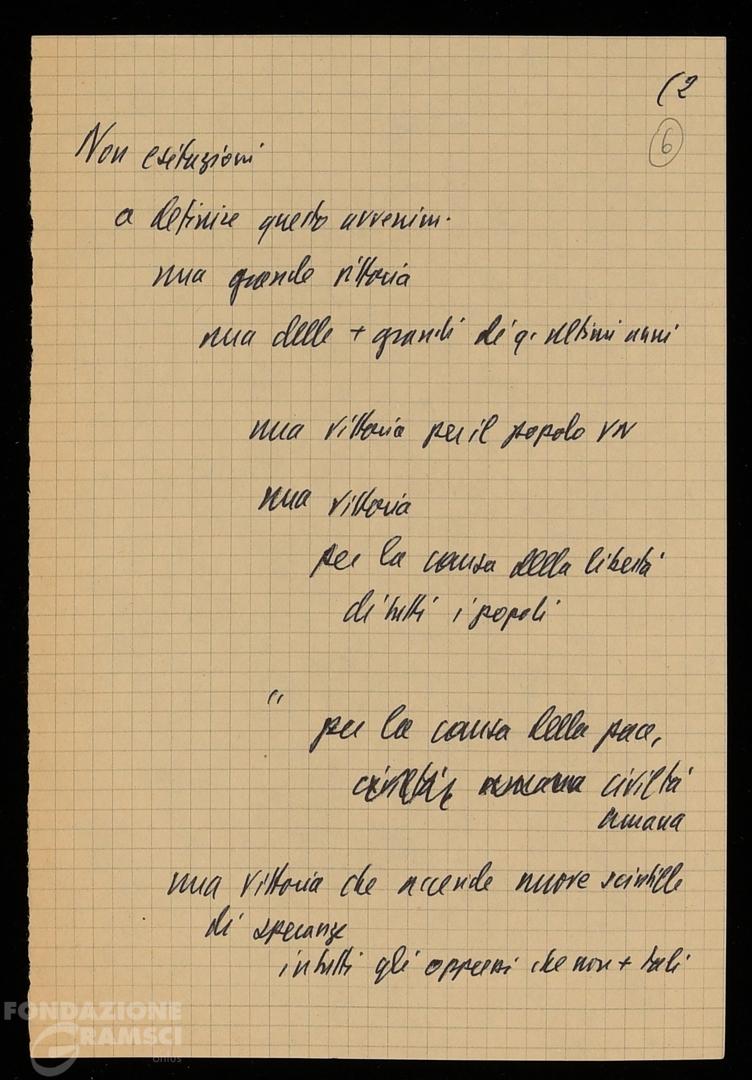 (2
6
Non esitazioni
a definire questo avvenim.
una grande vittoria
una delle + grandi di q. ultimi anni
una vittoria per il popolo VN
una vittoria
per la causa della libertà
di tutti i popoli
" per la causa della pace,
civiltà umana civiltà
umana
una vittoria che accende nuove scintille
di speranze
in tutti gli oppressi che non + tali
FONDAZIONE
GRAMSCI
onlus